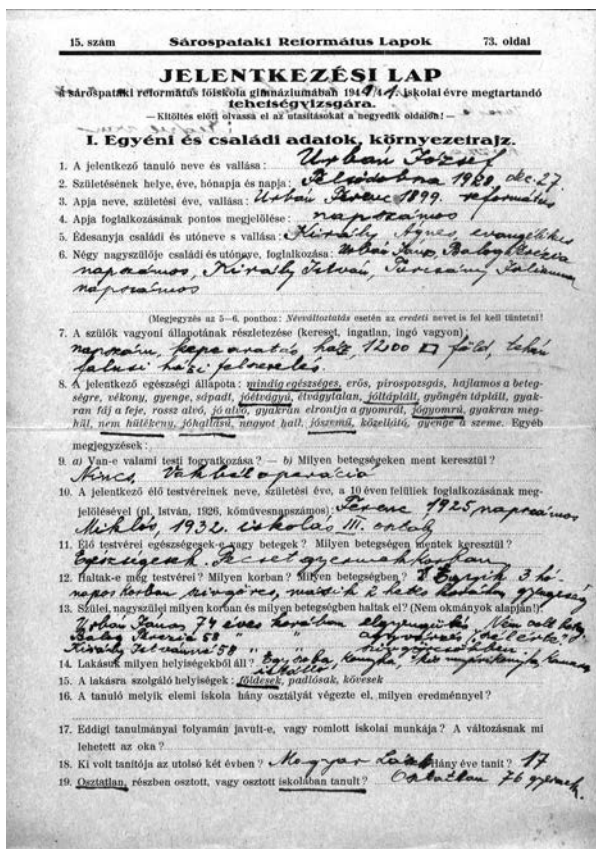 15. szám Sárospataki Református Lapok 73. oldal
JELENTKEZÉSI LAP
a sárospataki református főiskola gimnáziumában 194 iskolai évre megtartandó
tehetségvizsgára.
— Kitöltés előtt olvassa el az utasításokat a negyedik oldalon! —
I. Egyéni és családi adatok, környezetrajz.
1. A jelentkező tanuló neve és vallása: Urbán József
2. Születésének helye, éve, hónapja és napja: Felsődobsza 1928 dec. 27.
3. Apja neve, születési éve, vallása: Urbán Ferenc 1899. református
4. Apja foglalkozásának pontos megjelölése: napszámos
5. Édesanyja családi és utóneve s vallása: Király Ágnes, evangélikus
6. Négy nagyszülője családi és utóneve, foglalkozása: Urbán János, Balogh Terézia
napszámos, Király István, Julianna
napszámos
(Megjegyzés az 5—6. ponthoz: Névváltoztatás esetén az eredeti nevet is fel kell tüntetni!
7. A szülők vagyoni állapotának részletezése (kereset, ingatlan, ingó vagyon):
napszám, kepe aratás, ház, 1200 □ föld, tehén
falusi házi felszerelés.
8. A jelentkező egészségi állapota: mindig egészséges, erős, pirospozsgás, hajlamos a beteg-
ségre, vékony, gyenge, sápadt, jóétvágyú, étvágytalan, jóltáplált, gyöngén táplált, gyak-
ran fáj a feje, rossz alvó, jó alvó, gyakran elrontja a gyomrát, jógyomrú, gyakran meg-
hűl, nem hűlékeny, jóhallású, nagyot hall, jószemű, közellátó, gyenge a szeme. Egyéb
megjegyzések:
9. a) Van-e valami testi fogyatkozása? — b) Milyen betegségeken ment keresztül?
Nincs, Vakbél operáció
10. A jelentkező élő testvéreinek neve, születési éve, a 10 éven felüliek foglalkozásának meg-
jelölésével (pl. István, 1926, kőművesnapszámos): Ferenc 1925 napszámos
Miklós, 1932. iskolás III. osztály
11. Élő testvérei egészségesek-e vagy betegek? Milyen betegségen mentek keresztül?
Egészségesek. gyermekkorban
12. Haltak-e meg testvérei? Milyen korban? Milyen betegségben? Egyik 3 hó-
napos korban szívgörcs, másik 2 hetes korában gyengeség
13. Szülei, nagyszülei milyen korban és milyen betegségben haltak el? (Nem okmányok alapján!):
Urbán János 74 éves korában elgyengülés, Nem volt beteg.
Balog Terézia 58 " " agyvérzés
Király Istvánné 58 " " szívgörcsökben.
14. Lakásuk milyen helyiségekből áll? Egy szoba, konyha, nyárikonyha, kamara
istálló
15. A lakásra szolgáló helyiségek: földesek, padlósak, kövesek
16. A tanuló melyik elemi iskola hány osztályát végezte el, milyen eredménnyel?
17. Eddigi tanulmányai folyamán javult-e, vagy romlott iskolai munkája? A változásnak mi
lehetett az oka?
18. Ki volt tanítója az utolsó két évben? Magyar Hány éve tanít? 17
19. Osztatlan, részben osztott, vagy osztott iskolában tanult? Osztatlan 76 gyermek.